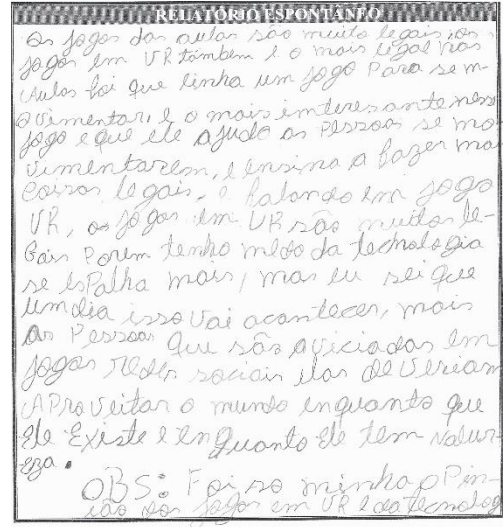 RELATÓRIO ESPONTÂNEO
Os jogos das aulas são muito legais, os
jogos em VR também e o mais legal nas
aulas foi que tinha um jogo Para se m-
ovimentar, e o mais interesante nesse
jogo e que ele ajuda as Pessoas se mo
vimentarem, e ensina a fazer
coisas legais, e falando em jogo
VR, os jogos em VR são muitos le-
gais Porem tenho medo da tecnologia
se esPalha mais, mas eu sei que
um dia isso vai acontecer, mais
As Pessoas que são aviciadas em
jogos redes sociais elas deveriam
APROVeitar o mundo enquanto que
Ele Existe e enquanto Ele tem natur-
eza.
OBS: Foi so minha oPin-
ião dos jogos em VR e da tecnolog